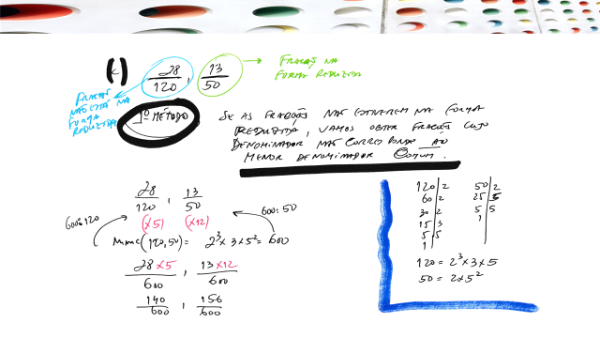 k)
28/120 , 13/50
FRACÇÃO NA
FORMA REDUZIDA
FRACÇÃO
NÃO ESTÁ NA
FORMA
REDUZIDA
1º MÉTODO
SE AS FRACÇÕES NÃO ESTIVEREM NA FORMA
REDUZIDA, VAMOS OBTER FRACÇÕES CUJO
DENOMINADOR NÃO CORRESPONDE AO
MENOR DENOMINADOR COMUM.
28/120 , 13/50
(×5) (×12)
600:120
600:50
m.m.c(120,50) = 2³×3×5² = 600
28×5/600 , 13×12/600
140/600 , 156/600
120|2
60|2
30|2
15|3
5|5
1|
50|2
25|5
5|5
1|
120 = 2³×3×5
50 = 2×5²